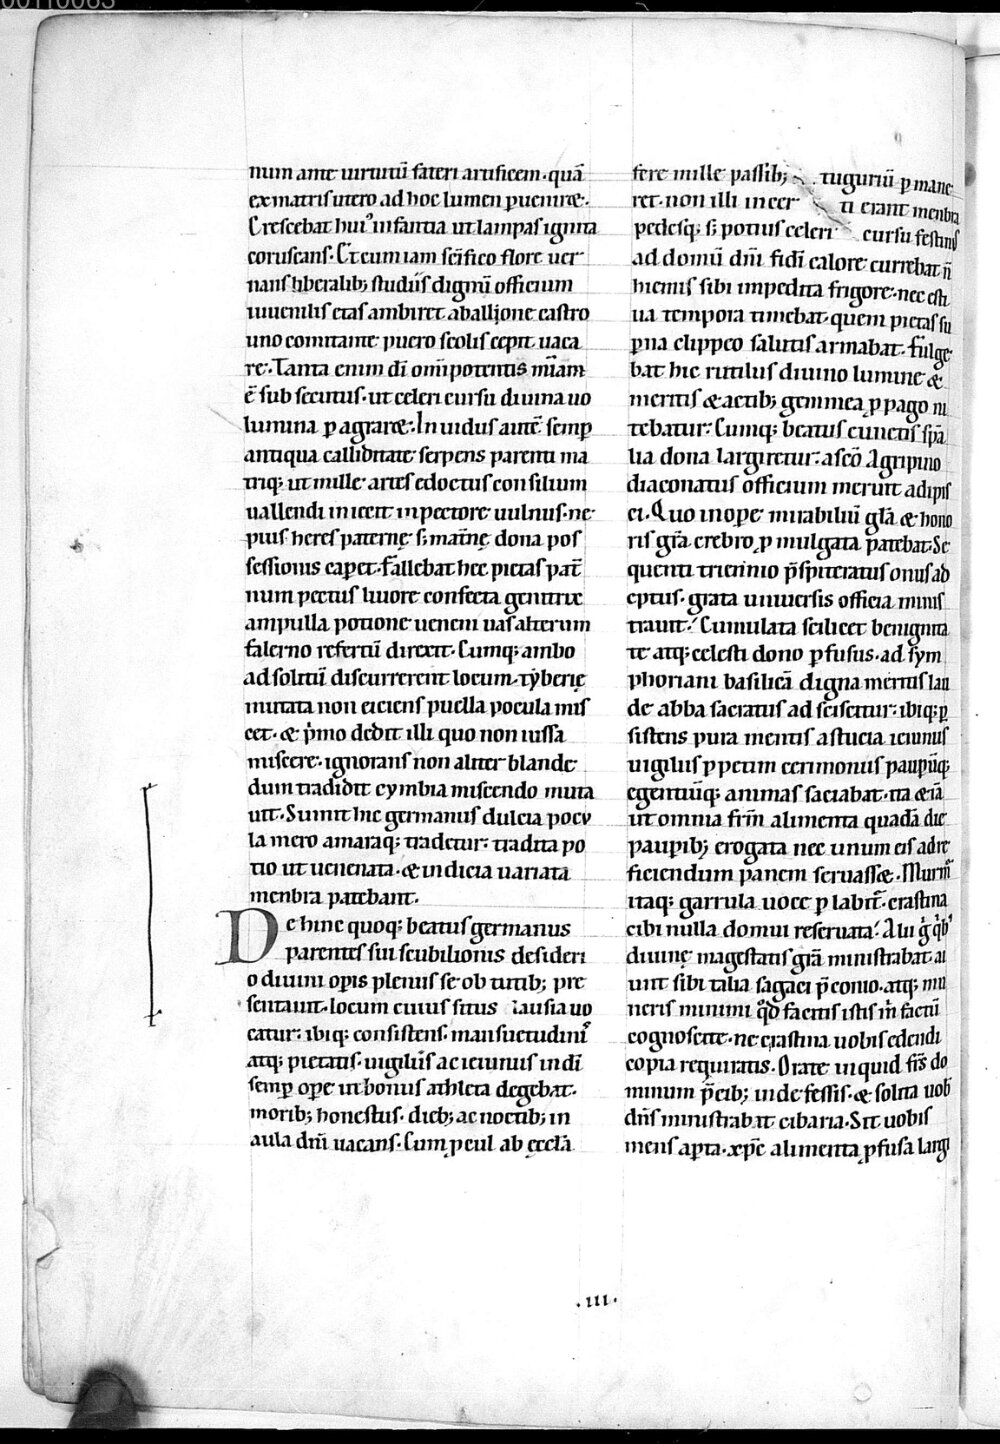 00110063
num ante uirtutū fateri artificem· quā
ex matris utero ad hoc lumen ꝑuenire·
Crescebat huiꝰ infantia ut lampas ignita
coruscans· Et cum iam sc̄ifico flore uer
nans liberalib; studiis dignū officium
iuuenilis etas ambiret aballione castro
uno comitante puero scolis cepit uaca
re· Tanta enim dī om̄ipotentis mīam
ē sub secutus· ut celeri cursu diuina uo
lumina ꝑagraret· Inuidus autē semꝑ
antiqua calliditate serpens parenti ma
triq; ut mille artes edoctus consilium
uallendi iniecit in pectore uulnus· ne
pius heres paternę s; mat̄nę dona pos
sessionis caperet· fallebat hec pietas pat̄
num pectus liuore confecta genitrix
ampulla potione ueneni uas alterum
falerno refertū direxit· Cumq; ambo
ad solitū discurrerent locum· tẏberię
mutata non eiciens puella pocula mis
cet· & p̄mo dedit illi quo non iussa
miscere· ignorans non aliter blande
dum tradidit cymbia miscendo muta
uit· Sumit hic germanus dulcia pocu
la mero amaraq; tradetur· tradita po
tio ut uenenata· & indicia uariata
menbra patebant·
De hinc quoq; beatus germanus
parentes sui scubilionis desideri
o diuini oꝑis plenus se ob tutib; pre
sentauit· locum cuius situs lausia uo
catur· ibiq; consistens· mansuetudini
atq; pietatis· uigiliis ac ieiuniis indī
semꝑ oꝑe ut bonus athleta degebat·
morib; honestus· dieb; ac noctib; in
aula dn̄i uacans· Cum ꝓcul ab eccl̄a
fere mille passib; tuguriū ꝑmane
ret· non illi incer ti erant menbra
pedesq; s; potius celeri cursu festinꝰ
ad domū dn̄i fidī calore currebat n̄
hiemis sibi impedita frigore· nec esti
ua tempora timebat· quem pietas su
ꝑna clippeo salutis armabat· fulge
bat hic rutilus diuino lumine &
meritis & actib; gemmea ꝓpago ni
tebatur· Cumq; beatus cunctis sp̄a
lia dona largiretur· a sc̄o Agripino
diaconatus officium meruit adipis
ci· Quo inopere mirabiliū gl̄a & hono
ris gr̄a crebro ꝓmulgata patebat· Se
quenti triennio p̄spiteratus onus ad
eptus· grata uniuersis officia minis
trauit· Cumulata scilicet benignita
te atq; celesti dono ꝑfusus· ad sym
phoriani basilicā digna meritis lau
de abba sacratus adsciscitur· ibiq; ꝑ
sistens pura mentis astucia ieiuniis
uigiliis ꝑpetim cerimoniis pauperūq;
egentiūq; animas saciabat· ita & iā
ut omnia fr̄m alimenta quadā die
pauꝑib; erogata nec unum eis ad re
ficiendum panem seruasset· Murm̄
itaq; garrula uoce ꝑlabit̄· crastina
cibi nulla domui reseruata· Alii
diuinę magestatis gr̄a ministrabat ai
unt sibi talia sagaci p̄conio· atq; mu
neris minimi qd̄ facitis istis m̄ factū
cognoscite· ne crastina uobis edendi
copia requiratis· Orate inquid fr̄s do
minum p̄cib; indefessis· & solita uob
dn̄s ministrabat cibaria· Sit uobis
mens apta· xp̄e alimenta ꝑfusa langi
·III·